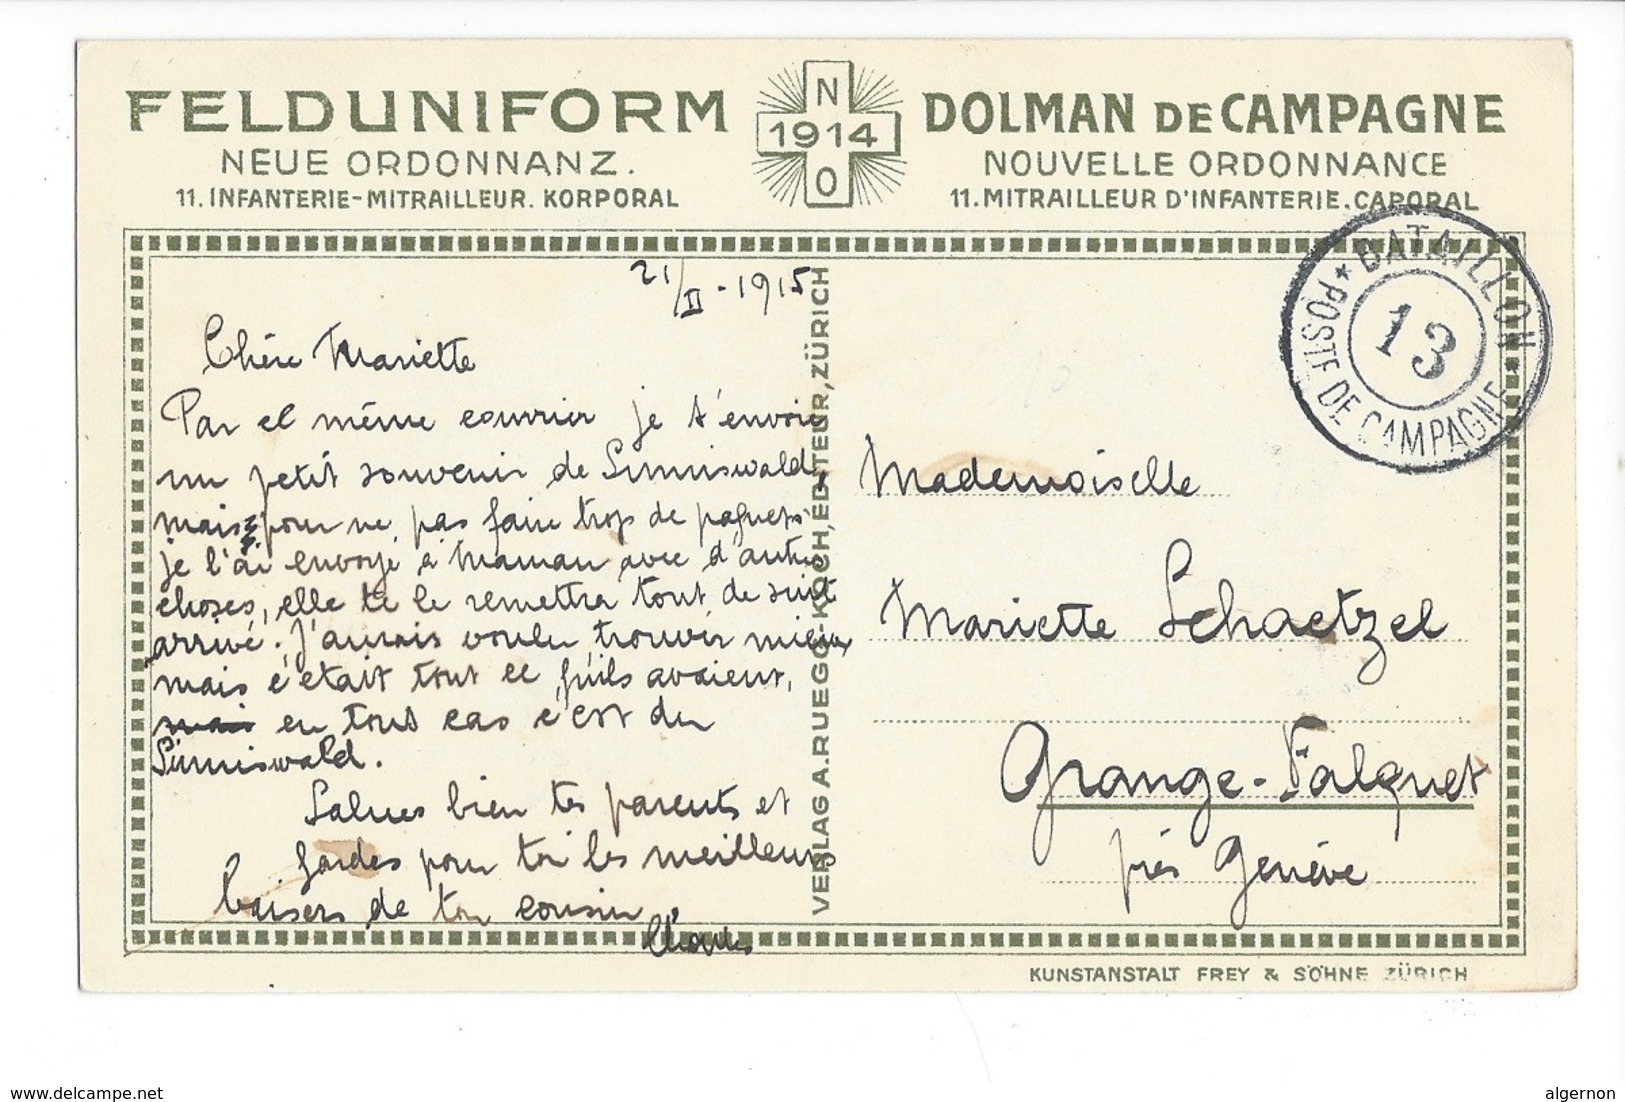 FELDUNIFORM
NEUE ORDONNANZ.
11. INFANTERIE-MITRAILLEUR. KORPORAL
NO
1914
DOLMAN DE CAMPAGNE
NOUVELLE ORDONNANCE
11. MITRAILLEUR D'INFANTERIE. CAPORAL
BATAILLON
13
* POSTE DE CAMPAGNE *
21/II - 1915
Chère Mariette
Par el même courrier je t'envoie
un petit souvenir de Sumiswald,
mais pour ne pas faire trop de paquets
je l'ai envoyé à Maman avec d'autres
choses, elle te le remettra tout de suite
arrivé. J'aurais voulu trouver mieux
mais c'était tout ce qu'ils avaient,
mais en tous cas c'est du
Sumiswald.
Salues bien tes parents et
gardes pour toi les meilleurs
baisers de ton cousin,
Charles
VERLAG A. RUEGG-KOCH, EDITEUR, ZÜRICH
Mademoiselle
Mariette Schaetzel
Grange-Falquet
près Genève
KUNSTANSTALT FREY & SÖHNE ZÜRICH
www.delcampe.net
algernon